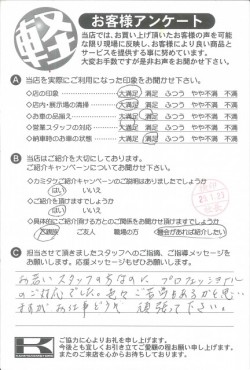 軽
お客様アンケート
当店では、お買い上げ頂いたお客様の声を可能
な限り現場に反映し、お客様により良い商品と
サービスを提供する事に努めています。
大変お手数ですが是非お声をお聞かせ下さい。
A 当店を実際にご利用になった印象をお聞かせ下さい。
◇店の印象 大満足 満足 ふつう やや不満 不満
◇店内・展示場の清掃 大満足 満足 ふつう やや不満 不満
◇お車の品揃え 大満足 満足 ふつう やや不満 不満
◇営業スタッフの対応 大満足 満足 ふつう やや不満 不満
◇納車時のお車の状態 大満足 満足 ふつう やや不満 不満
B 当店はご紹介を大切にしております。
ご紹介キャンペーンについてお聞かせ下さい。
◇カミタウご紹介キャンペーンの説明はありましたでしょうか
はい いいえ
◇ご紹介を頂けますでしょうか
はい いいえ
◇具体的にご紹介頂ける方とのご関係をお聞かせ頂けますでしょうか
ご親族 ご友人 職場の方 機会があれば紹介したい
C 担当させて頂きましたスタッフへのご指摘、ご指導メッセージを
お願いします。応援メッセージもぜひお願いします。
お若いスタッフの方なのに、プロフェッショナル
ですが お仕事 頑張って下さい。
K
ご協力に心よりお礼を申し上げます。
今後とも宜しくお引き立てご愛顧の程お願い申し上げます。
またのご来店を心からお待ちしております。